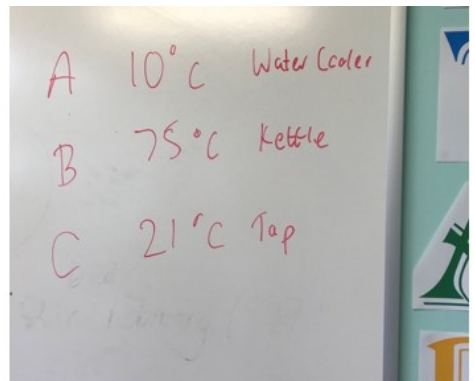 A 10°C Water Cooler
B 75°C Kettle
C 21°C Tap